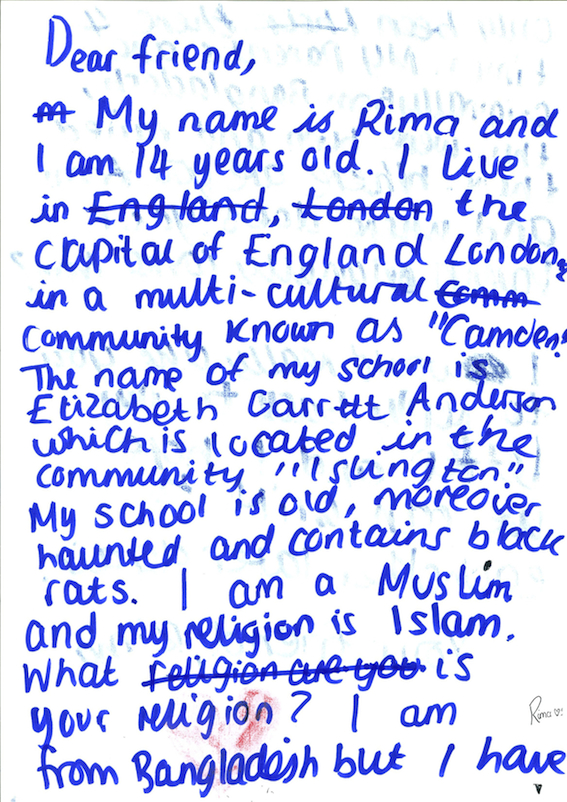 Dear friend,
m My name is Rima and
I am 14 years old. I live
in England, London the
capital of England London,
in a multi-cultural comm
community known as "Camden."
The name of my school is
Elizabeth Garrett Anderson
which is located in the
community "Islington."
My school is old, moreover
haunted and contains black
rats. I am a Muslim
and my religion is Islam.
What religion are you is
your religion? I am
Rima ♡!
from Bangladesh but I have